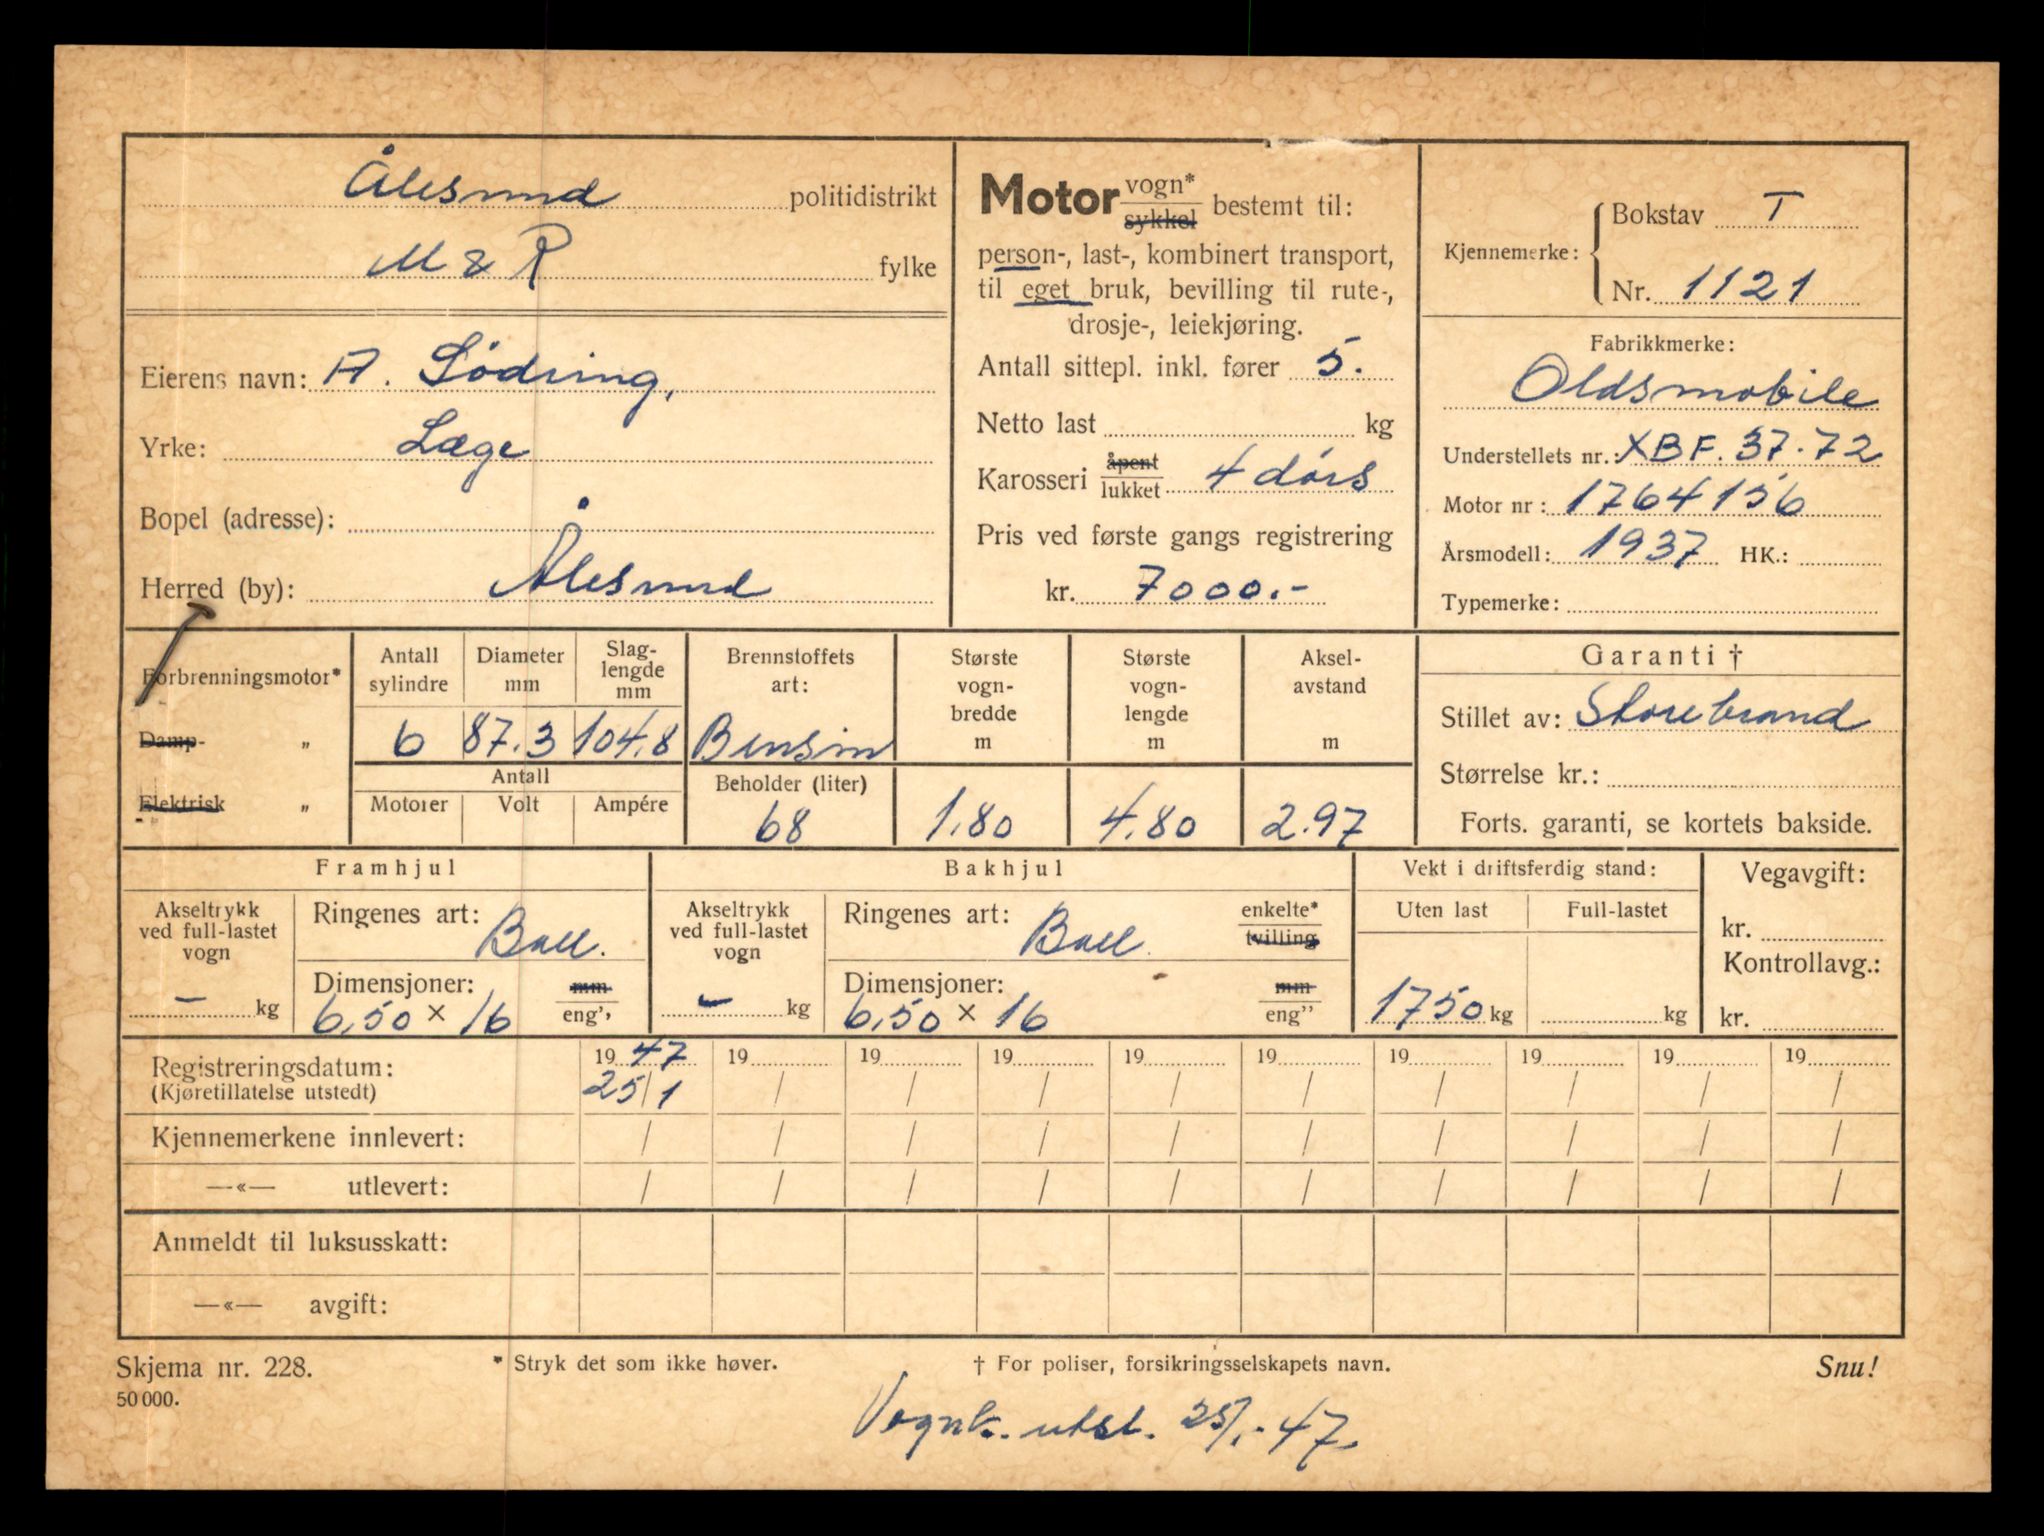 Ålesund politidistrikt
M & R fylke
Eierens navn: A. Södring,
Yrke: Læge
Bopel (adresse):
Herred (by): Ålesund
Motor vogn* sykkel bestemt til:
person-, last-, kombinert transport,
til eget bruk, bevilling til rute-,
drosje-, leiekjøring.
Antall sittepl. inkl. fører 5.
Netto last kg
Karosseri åpent lukket 4 dørs
Pris ved første gangs registrering
kr. 7000.-
Kjennemerke: Bokstav T
Nr. 1121
Fabrikkmerke:
Oldsmobile
Understellets nr.: XBF. 37-72
Motor nr: 1764156
Årsmodell: 1937 HK.:
Typemerke:
Forbrenningsmotor*
Damp- „
Elektrisk „
Antall sylindre Diameter mm Slag-lengde mm
6 87.3 104.8
Antall
Motorer Volt Ampére
Brennstoffets art:
Bensin
Beholder (liter)
68
Største vogn-bredde m
1.80
Største vogn-lengde m
4.80
Aksel-avstand m
2.97
Garanti †
Stillet av: Storebrand
Størrelse kr.:
Forts. garanti, se kortets bakside.
Framhjul
Akseltrykk ved full-lastet vogn
– kg
Ringenes art: Ball.
Dimensjoner: mm
6,50 x 16 eng''
Bakhjul
Akseltrykk ved full-lastet vogn
– kg
Ringenes art: Ball. enkelte* tvilling
Dimensjoner: mm
6,50 x 16 eng''
Vekt i driftsferdig stand:
Uten last Full-lastet
1750 kg kg
Vegavgift:
kr.
Kontrollavg.:
kr.
Registreringsdatum: 19 47 19 19 19 19 19 19 19 19 19
(Kjøretillatelse utstedt) 25/1 / / / / / / / / /
Kjennemerkene innlevert: / / / / / / / / / /
—«— utlevert: / / / / / / / / / /
Anmeldt til luksusskatt:
—«— avgift:
Skjema nr. 228. * Stryk det som ikke høver. † For poliser, forsikringsselskapets navn. Snu!
50 000.
Vognk. utst. 25/1-47.